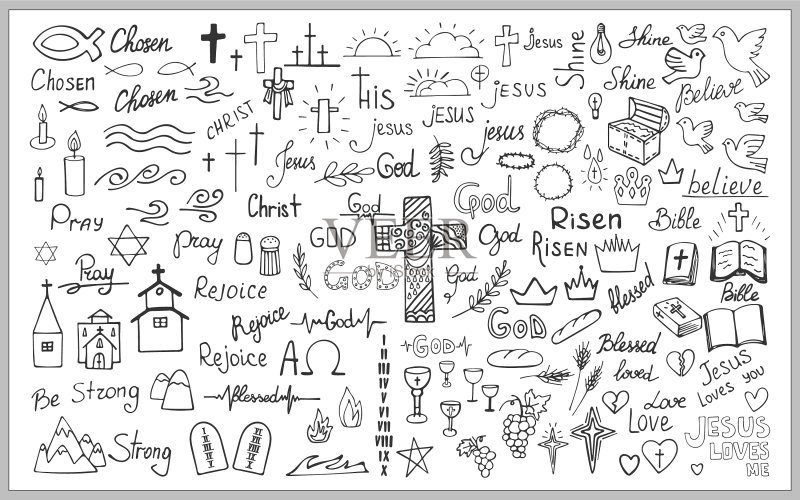 Chosen
Jesus
Shine
Shine
Chosen
Chosen
His
Jesus
Jesus
Shine
Believe
CHRIST
jesus
jesus
Jesus
God
believe
Pray
Christ
God
God
Risen
Bible
Pray
GOD
God
RISEN
VEER
Pray
GOD
God
blessed
Bible
Rejoice
Rejoice
God
GOD
Blessed
loved
Rejoice
ΑΩ
GOD
Jesus
Loves you
Be Strong
blessed
Love
Love
Strong
I
II
III
IV
V
VI
VII
VIII
IX
X
JESUS
LOVES
ME